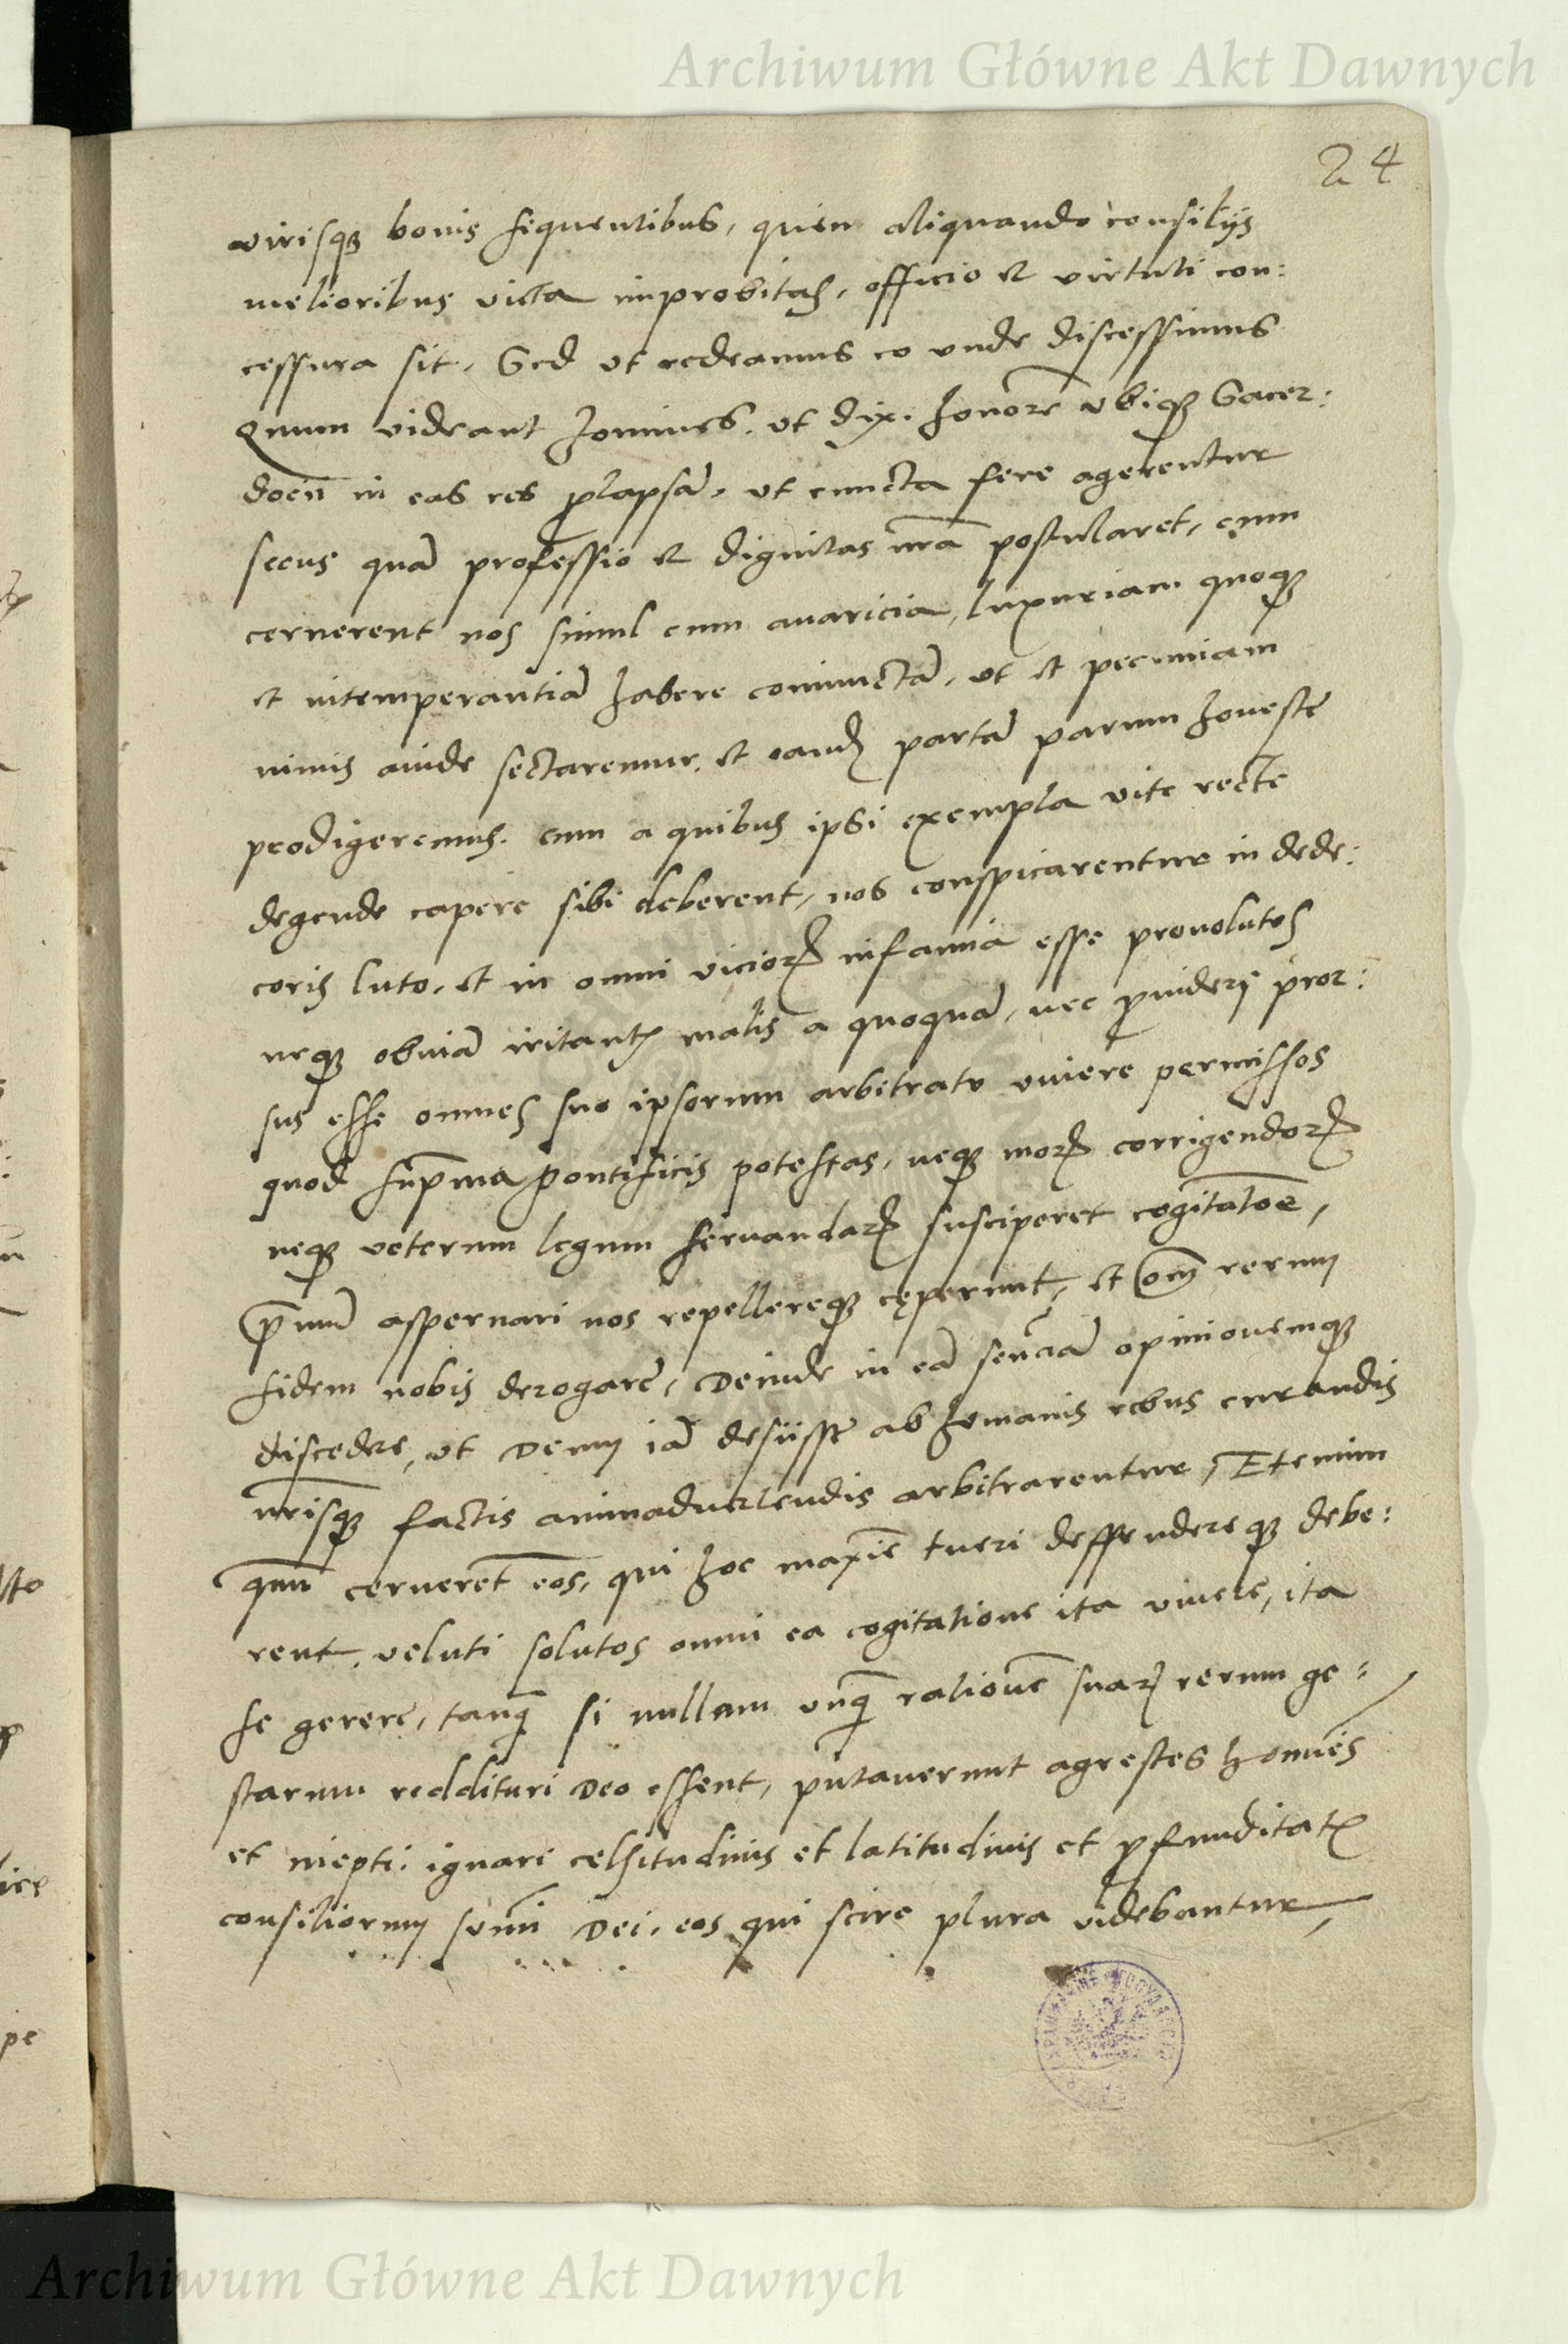 Archiwum Główne Akt Dawnych
24
virisq; bonis sequentibus, quin aliquando consilijs
melioribus victa improbitas, officio et virtuti con:
cessura sit. Sed ut redeamus eo unde discessimus
Quum videant homines. ut dixi. honore ubiq; Sacer:
docũ in eas res plapsã, ut cuncta fere agerentur
secus quã professio et dignitas nrã postularet, cum
cernerent nos simul cum avaricia, luxuriam quoq;
et intemperantiã habere coniunctã, ut et pecuniam
nimis avide sectaremur, et eandẽ partã parum honeste
prodigeremus. cum a quibus ipsi exempla vite recte
degende capere sibi deberent, nos conspicarentur in dede:
coris luto, et in omni vicioꝝ infamia esse provolutos
neq; obviã iri tantis malis a quoquã, nec ꝓvideri pror:
sus esse omnes suo ipsorum arbitratu vivere permissos
quod supma pontificis potestas, neq; moꝝ corrigendoꝝ
neq; veterum legum servandaꝝ susciperet cogitatõe,
pmũ aspernari nos repellereq; cęperunt, et om̃ rerum
fidem nobis derogare, Deinde in eã senciã opinionemq;
discedere, ut Deum iã desiisse ab humanis rebus curandis
nrisq; factis animadvertendis arbitrarentur, Etenim
qnũ cernerent eos, qui hoc maxĩe tueri deffendereq; debe:
rent, veluti solutos omni ea cogitatione ita vivere, ita
se gerere, tanq̃ si nullam unq̃ rationẽ suaꝝ rerum ge:
starum reddituri Deo essent, putaverunt agrestes homĩes
et inepti, ignari celsitudinis et latitudinis et ꝓfunditatis
consiliorum sumi Dei, eos qui scire plura videbantur,
Archiwum Główne Akt Dawnych